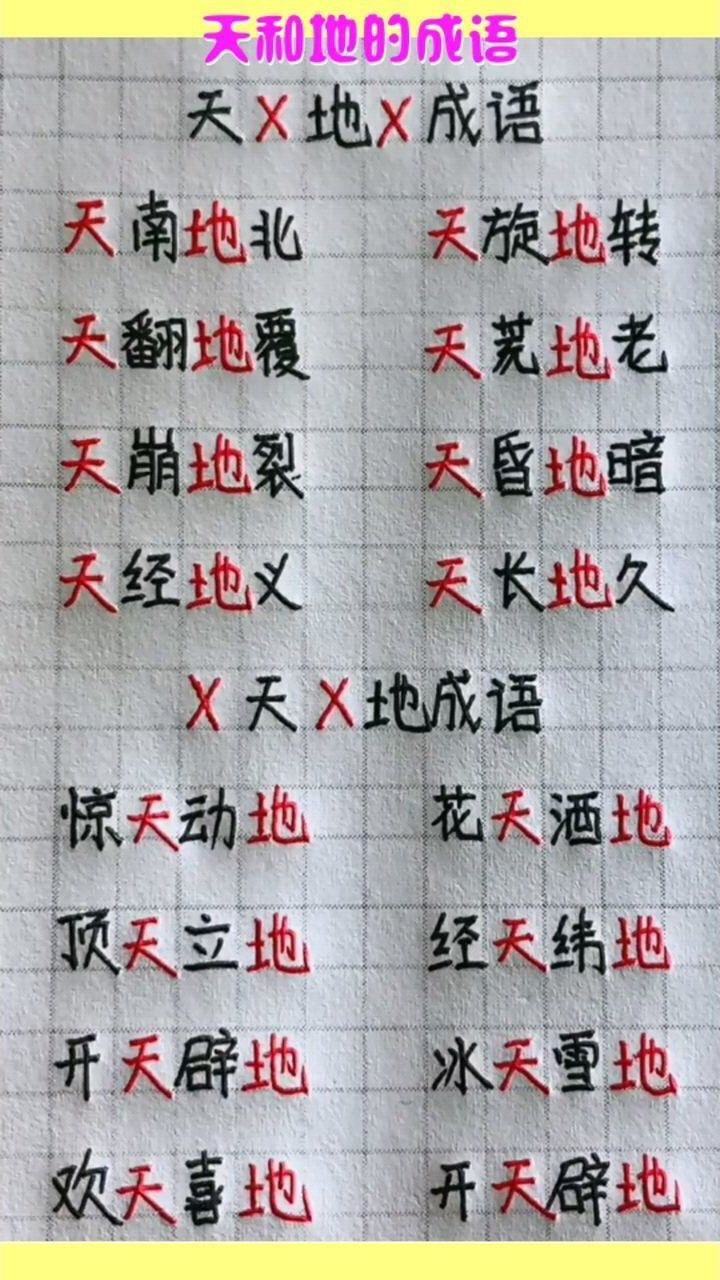 天和地的成语
天X地X成语
天南地北 天旋地转
天翻地覆 天荒地老
天崩地裂 天昏地暗
天经地义 天长地久
X天X地成语
惊天动地 花天洒地
顶天立地 经天纬地
开天辟地 冰天雪地
欢天喜地 开天辟地